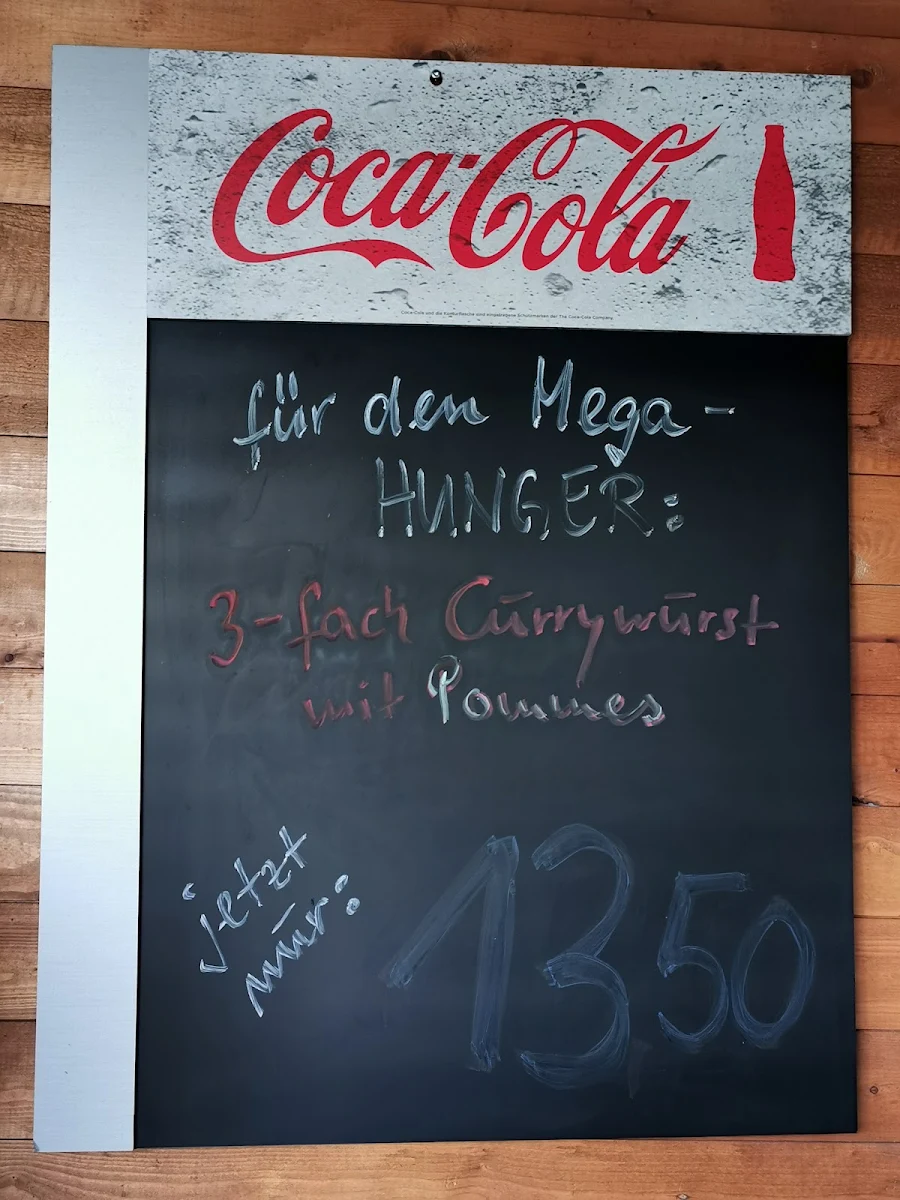 Coca-Cola
Coca-Cola und die Konturflasche sind eingetragene Schutzmarken der The Coca-Cola Company
für den Mega-
HUNGER:
3-fach Currywurst
mit Pommes
jetzt
nur:
13 50